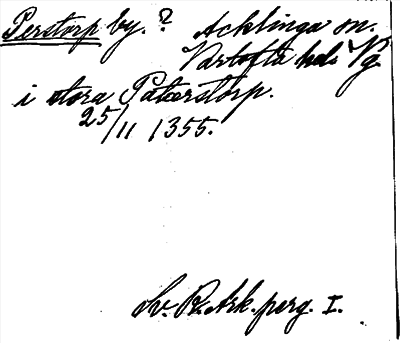 Perstorp by. ? Acklinga sn.
Vartofta hd. Vg
i stora Pæterstorp.
25/11 1355.
Sv. R. Ark. perg. I.